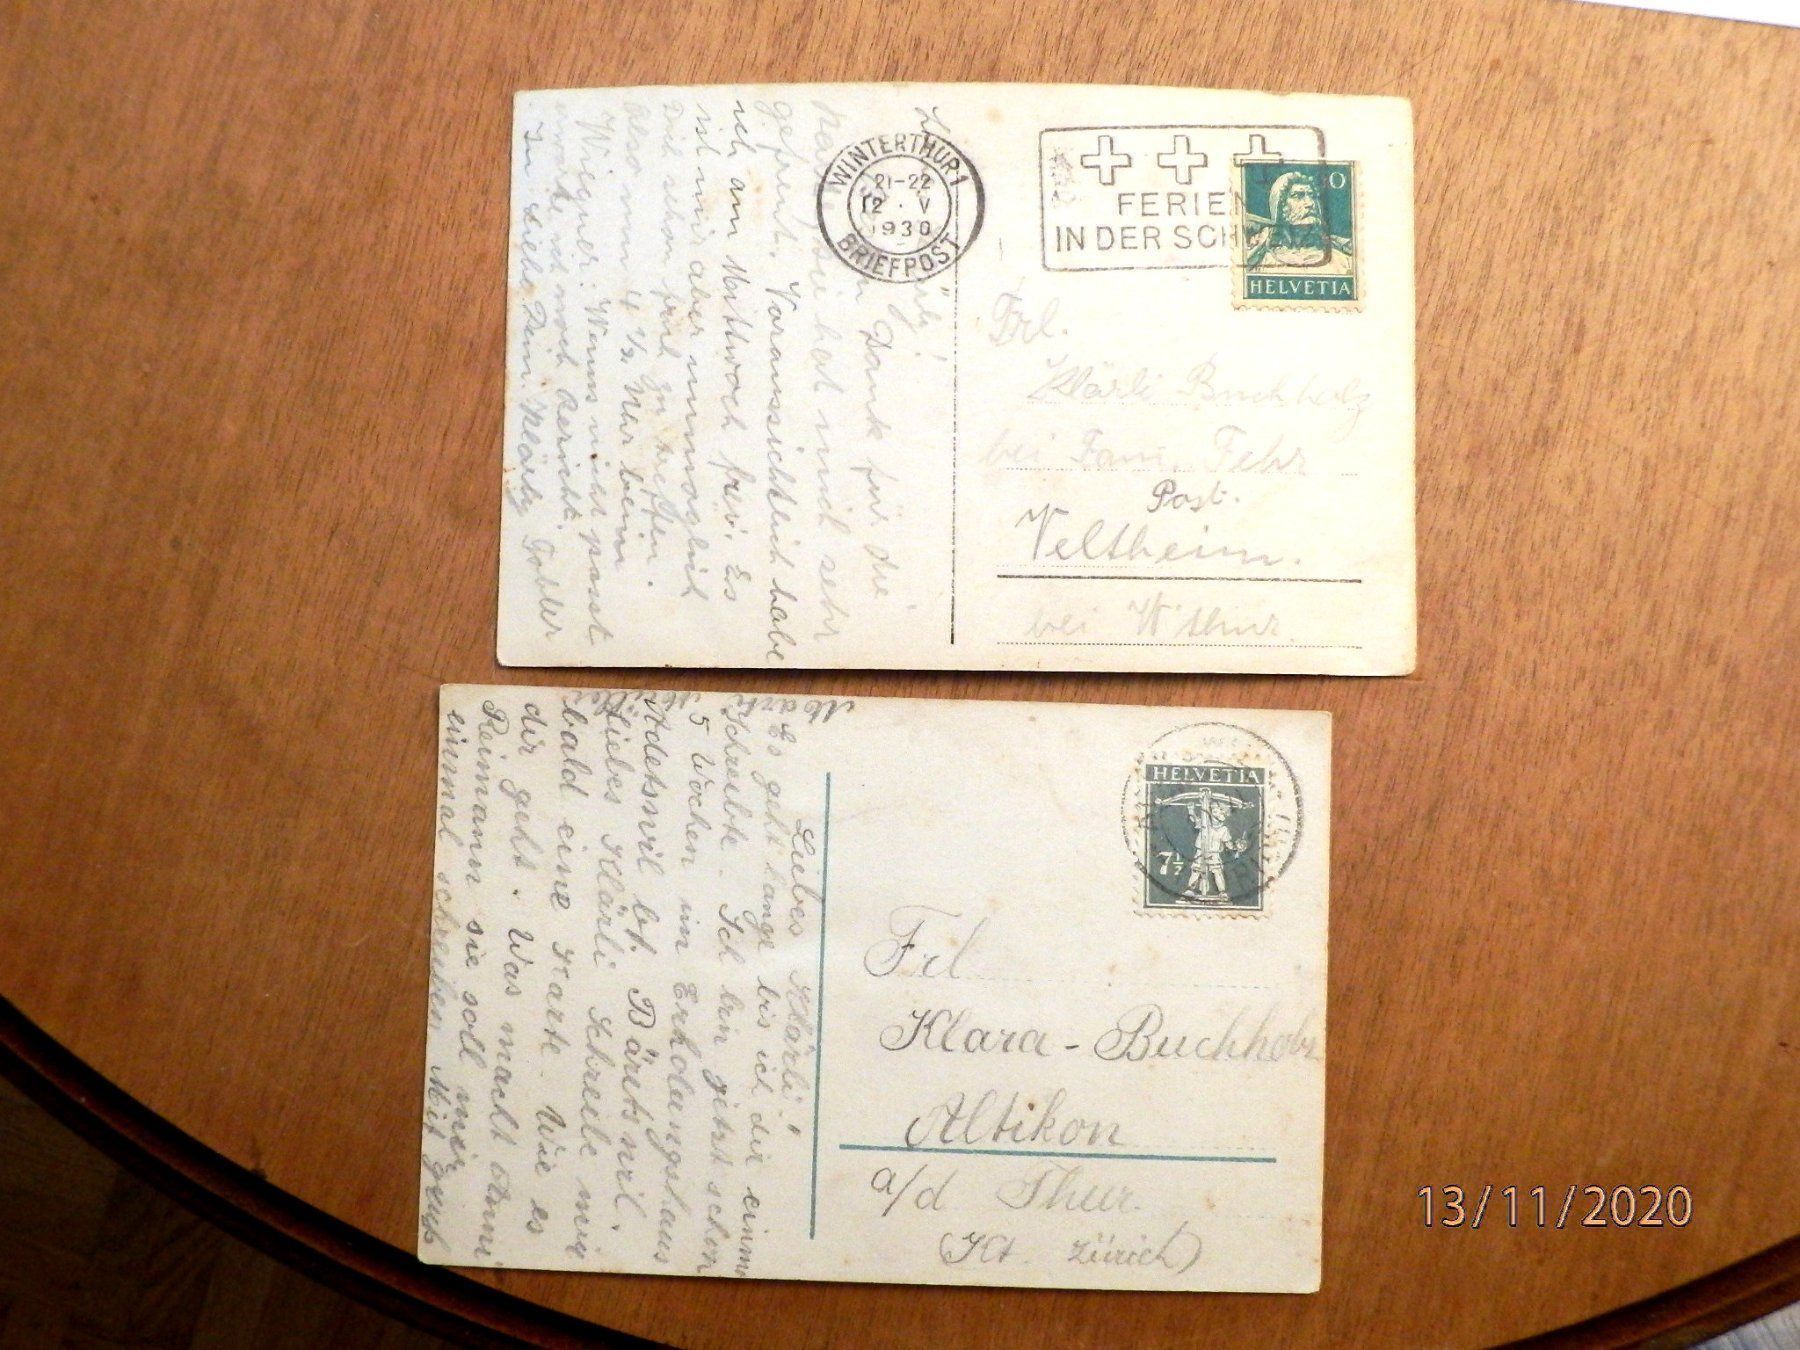 WINTERTHUR 1
21-22
12. V
1930
BRIEFPOST
FERIEN
IN DER SCHWEIZ
10
HELVETIA
Frl.
Klärli Buchholz
bei Fam. Fehr
Post.
Veltheim.
bei W'thur.
Dank für die
hat mich sehr
gefreut. Voraussichtlich habe
ich am Mittwoch frei. Es
ist mir aber unmöglich
Dich schon früh zu treffen.
Also um 4 ½ Uhr beim
Wiegner. Wenns nicht passt
erwarte ich noch Bericht.
In Liebe Dein Klärly Gobler
HELVETIA
7½
Frl
Klara - Buchholz
Altikon
a/d Thur.
(Kt. Zürich)
Liebes Klärli!
Es geht lange bis ich dir einmal
Schreibte. Ich bin jetzt schon
5 Wochen im Erholungshaus
Adetswil bt. Bäretswil.
Liebes Klärli Schreibe mir
bald eine Karte. Wie es
dir geht. Was macht Anni
Reimann sie soll mir
einmal schreiben Mit gruss
13/11/2020